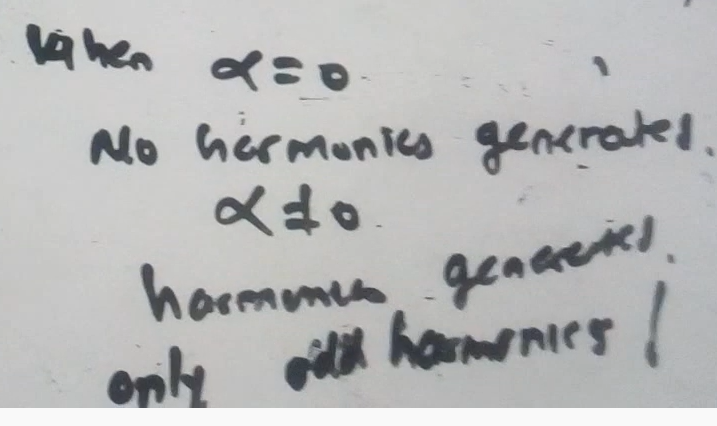 When α=0
No harmonics generated.
α≠0.
harmonics generated.
only odd harmonics!